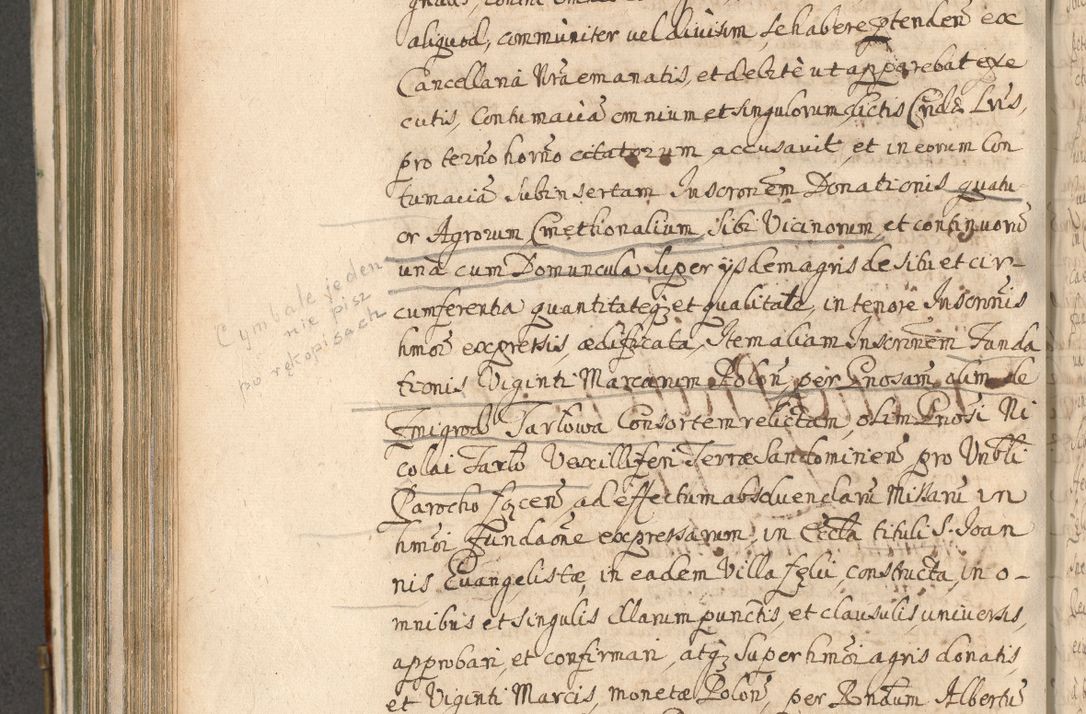 aliquod, communiter vel divisim, se habere ptenden̄ ex
Cancellaria Nrã emanatis, et debitè ut apparebat exe
cutis, Contumaciã omnium et singulorum, dictis Lris,
pro terno horno citatorum accusavit, et in eorum Con
tumaciã subinsertam Inscronem Donationis quatu
or Agrorum Cmethonalium, sibi Vicinorum, et continuorũ
unà cum Domuncula super ijsdem agris de sibi et cir-
cumferentia quantitateq; et qualitate, in tenore Inscronis
hmõi expressis, ædificata, Item aliam Inscronem Funda
tionis Viginti Marcarum Polon̄, per Gnosam olim de
Zmigrod Tarłowa Consortem relictam, olim Gnosi Ni
colai Tarło Vexilliferi Terræ Sandomirien̄ pro Vnbli
Parocho ad effectum absolvendarũ Missarũ in
hmõi Fundaõne expressarum, in Eccla tituli S. Joan
nis Euangelistæ, in eadem Villa constructa, in o-
mnibus et singulis illarum punctis, et clausulis universis,
approbari, et confirmari, atq; super hmõi agris donatis,
et Viginti Marcis, monetæ Polon̄, per Rndum Albertũ
Cymbale jeden
nie pisz
po rękopisach